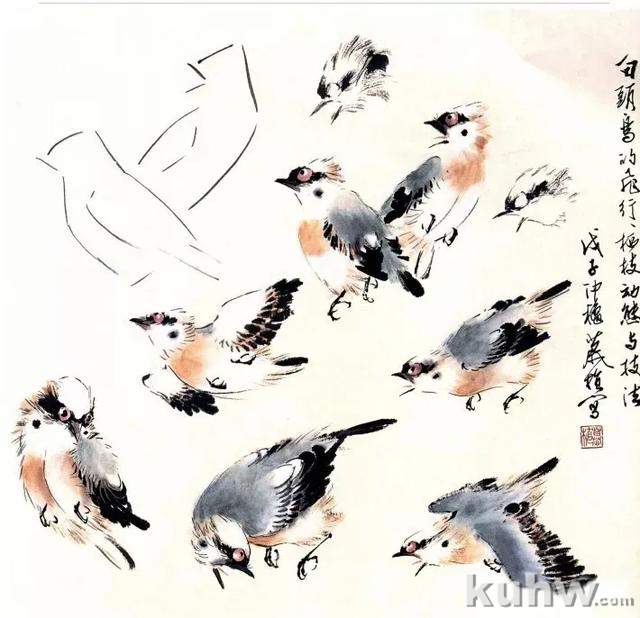 白頭鳥的飛行、栖枝动態与技法
戊子仲 写
kuhw.com